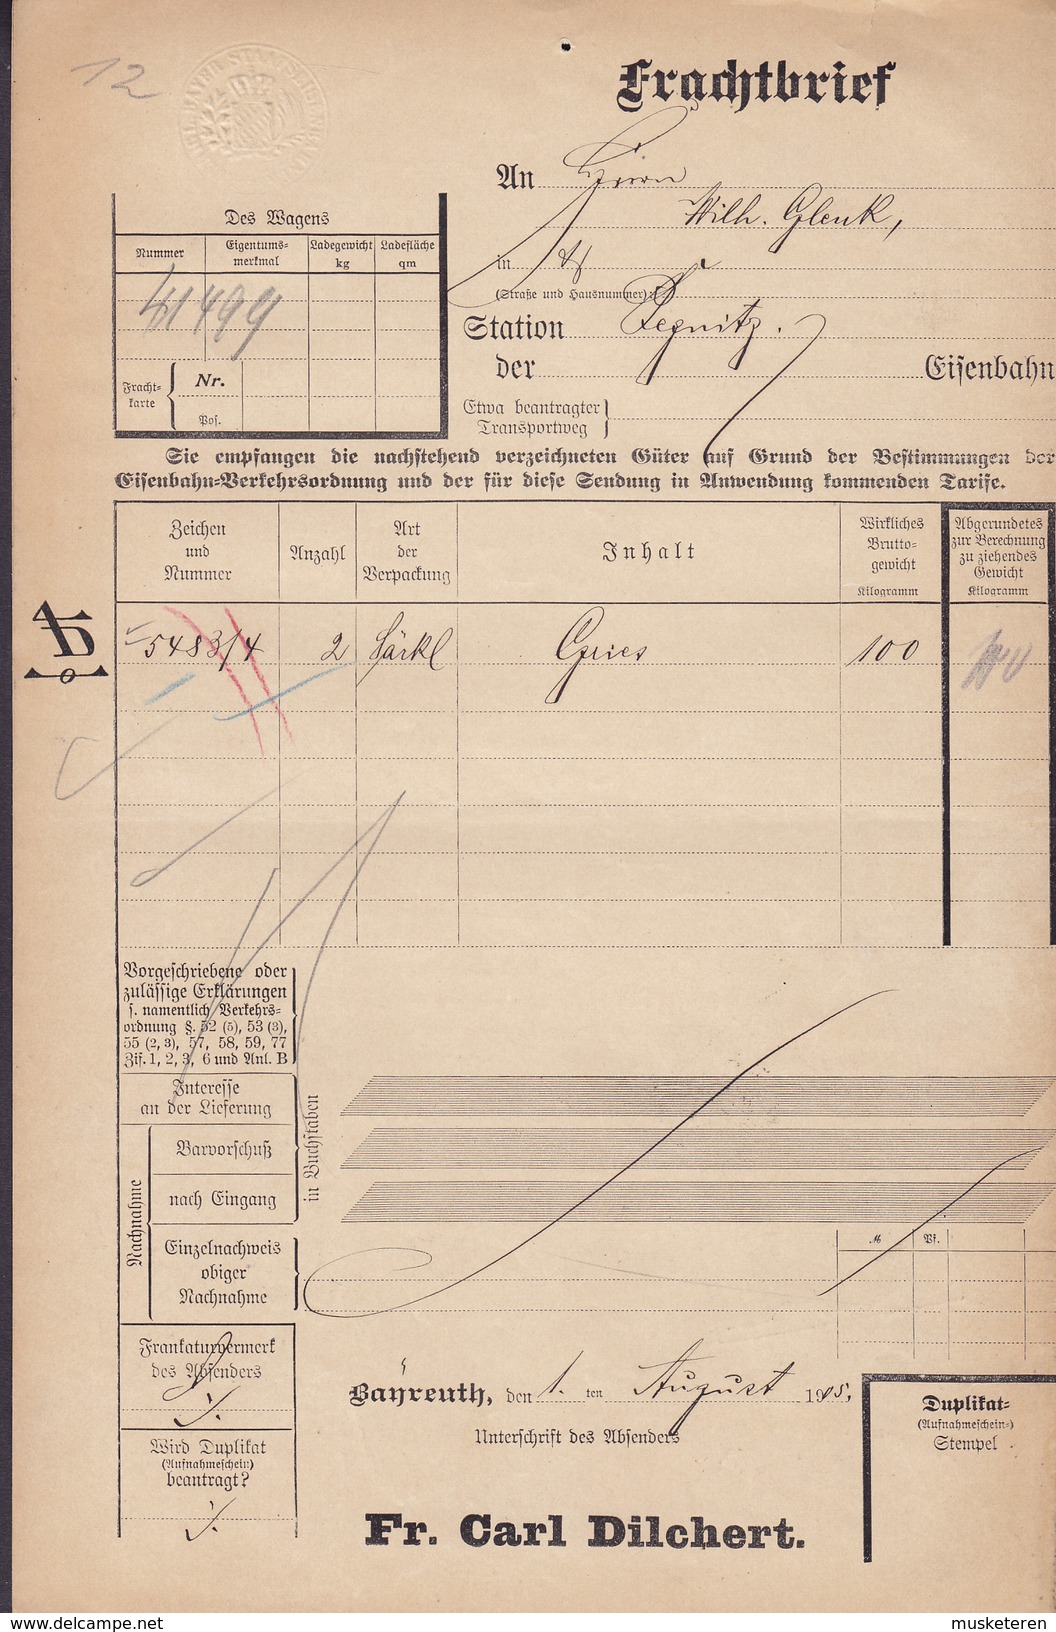 12
Frachtbrief
An Herrn
Wilh. Glenk,
in
(Straße und Hausnummer)
Station Pegnitz.
der Eisenbahn
Etwa beantragter
Transportweg
Des Wagens
Nummer
Eigentums-
merkmal
Ladegewicht
kg
Ladefläche
qm
41499
Fracht-
karte
Nr.
Pos.
Sie empfangen die nachstehend verzeichneten Güter auf Grund der Bestimmungen der
Eisenbahn-Verkehrsordnung und der für diese Sendung in Anwendung kommenden Tarife.
Zeichen
und
Nummer
Anzahl
Art
der
Verpackung
Inhalt
Wirkliches
Brutto-
gewicht
Kilogramm
Abgerundetes
zur Berechnung
zu ziehendes
Gewicht
Kilogramm
5483/4 2 Säckl Gries 100
Vorgeschriebene oder
zulässige Erklärungen
s. namentlich Verkehrs-
ordnung §. 52 (5), 53 (3),
55 (2, 3), 57, 58, 59, 77
Zif. 1, 2, 3, 6 und Anl. B
Interesse
an der Lieferung
Nachnahme
Barvorschuß
nach Eingang
in Buchstaben
Einzelnachweis
obiger
Nachnahme
M Pf.
Frankaturvermerk
des Absenders
Wird Duplikat
(Aufnahmeschein)
beantragt?
Bayreuth, den 1. ten August 1905.
Unterschrift des Absenders
Duplikat-
(Aufnahmeschein-)
Stempel
Fr. Carl Dilchert.
www.delcampe.net
musketeren